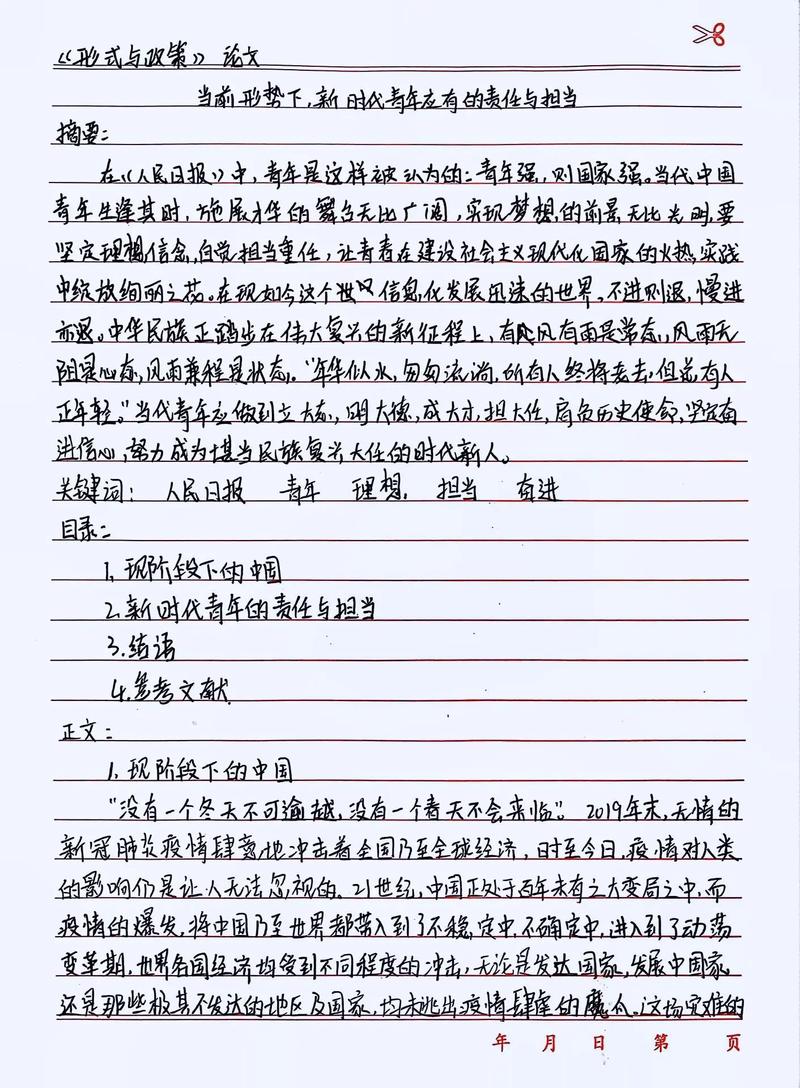 《形式与政策》 论文
当前形势下,新时代青年应有的责任与担当
摘要:
在《人民日报》中,青年是这样被认为的:青年强,则国家强。当代中国
青年生逢其时,施展才华的舞台无比广阔,实现梦想的前景无比光明,要
坚定理想信念,自觉担当重任,让青春在建设社会主义现代化国家的火热实践
中绽放绚丽之花。在现如今这个世 信息化发展迅速的世界。不进则退,慢进
亦退。中华民族正踏步在伟大复兴的新征程上,有风有雨是常态,风雨无
阻是心态,风雨兼程是状态。“年华似水,匆匆流淌,所有人终将老去,但总有人
正年轻。”当代青年应做到立大志,明大德,成大才,担大任,肩负历史使命,坚定奋
进信心,努力成为堪当民族复兴大任的时代新人。
关键词: 人民日报 青年 理想 担当 奋进
目录:
1.现阶段下的中国
2.新时代青年的责任与担当
3.结语
4.参考文献
正文:
1.现阶段下的中国
“没有一个冬天不可逾越,没有一个春天不会来临”。2019年末,无情的
新冠肺炎疫情肆意地冲击着全国乃至全球经济,时至今日,疫情对人类
的影响仍是让人无法忽视的。21世纪,中国正处于百年未有之大变局之中,而
疫情的爆发,将中国乃至世界都带入到了不稳定中,不确定中,进入到了动荡
变革期,世界各国经济均受到不同程度的冲击,无论是发达国家,发展中国家
还是那些极其不发达的地区及国家,均未逃出疫情肆虐的魔爪。这场灾难的
年 月 日 第 页